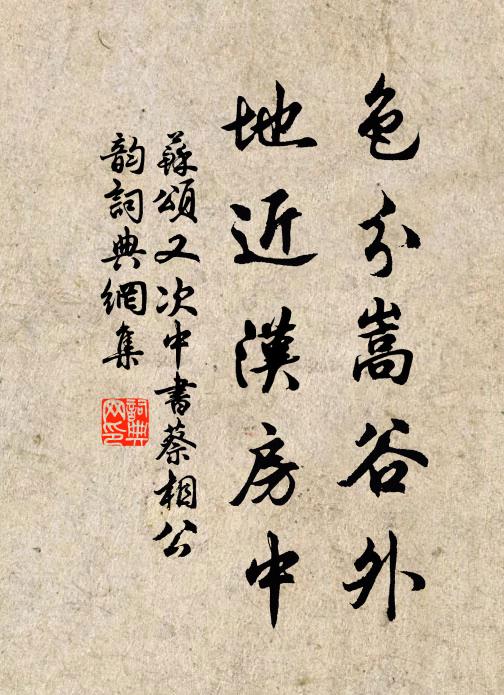 色分嵩谷外
地近漢房中
蘇頌又次中書蔡相公
韵詞典網集
詞典网印